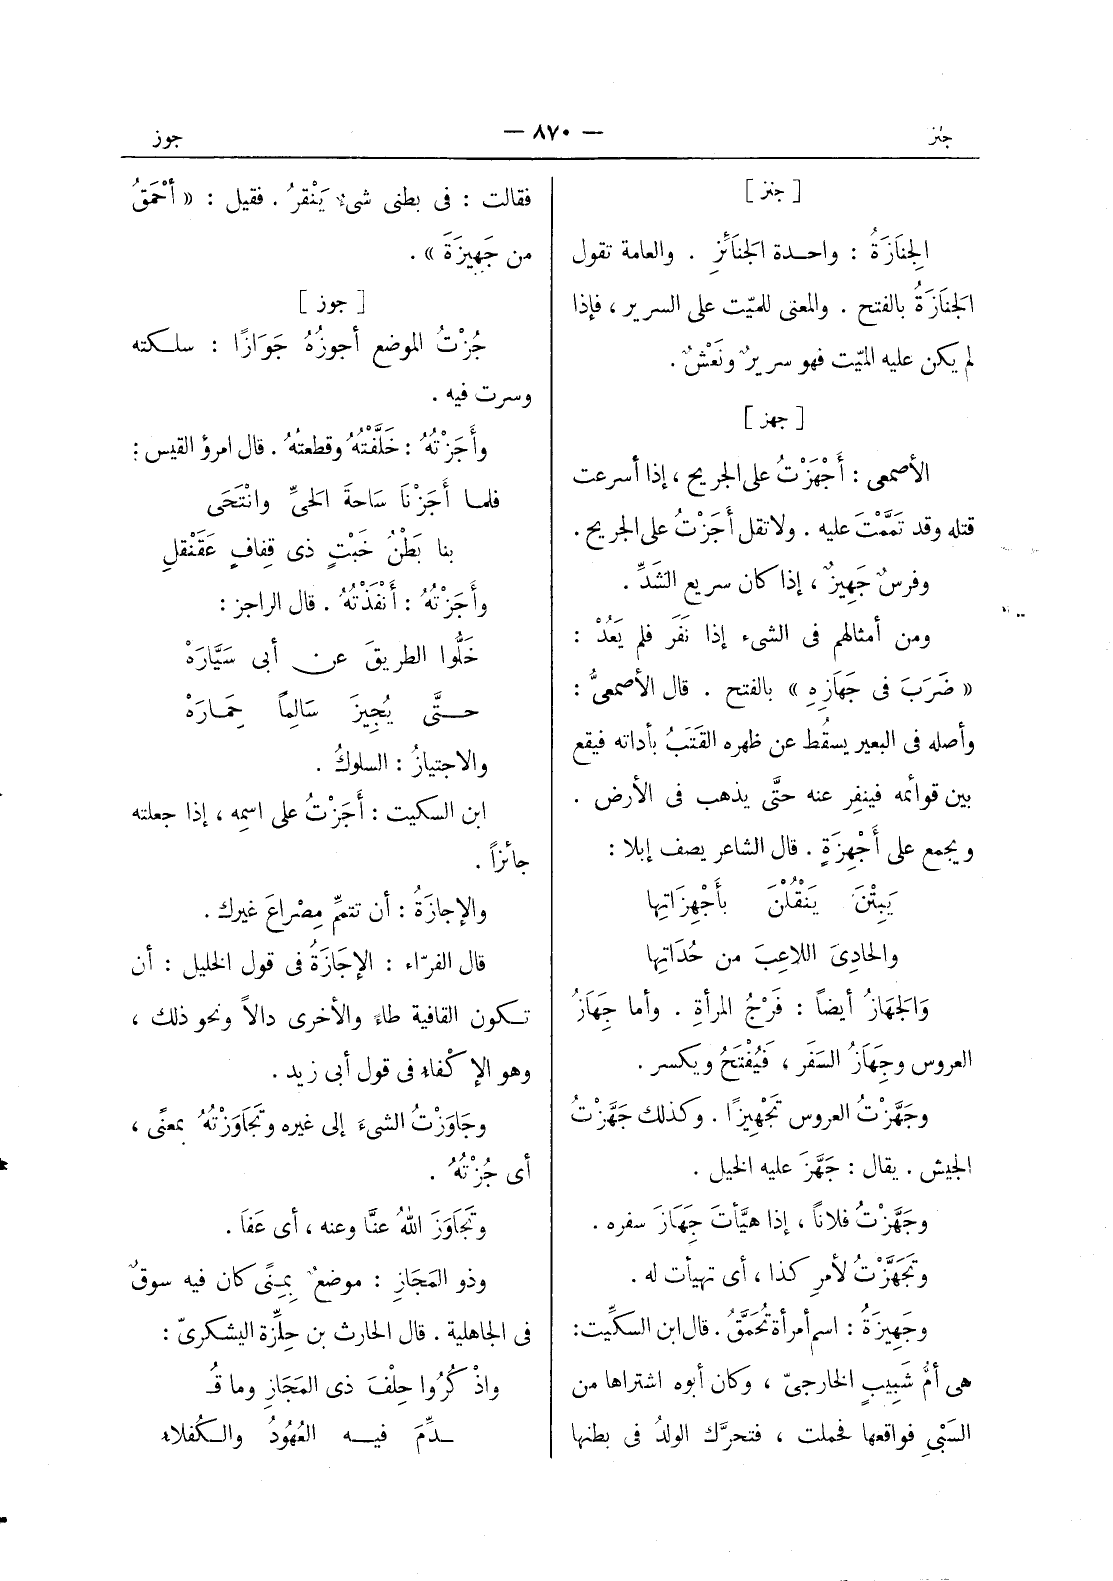 جنز
— ٨٧٠ —
جوز
[ جنز ]
الجِنَازَةُ : واحدة الجَنَائِزِ . والعامة تقول
الجَنَازَةُ بالفتح . والمعنى للميّت على السرير ، فإذا
لم يكن عليه الميّت فهو سريرٌ ونَعْشٌ .
[ جهز ]
الأصمعى : أَجْهَزْتُ على الجريح ، إذا أسرعت
قتله وقد تَمَّمْتَ عليه . ولا تقل أَجَزْتُ على الجريح .
وفرسٌ جَهِيزٌ ، إذا كان سريع الشَدِّ .
ومن أمثالهم فى الشىء إذا نَفَرَ فلم يَعُدْ :
« ضَرَبَ فى جَهَازِهِ » بالفتح . قال الأصمعىُّ :
وأصله فى البعير يسقُط عن ظهره القَتَبُ بأداته فيقع
بين قوائمه فينفِر عنه حتَّى يذهب فى الأرض .
ويجمع على أَجْهِزَةٍ . قال الشاعر يصف إبلا :
يَبِتْنَ يَنْقُلْنَ بأَجْهِزَاتِها
والحادِىَ اللاعِبَ من حُدَاتِها
وَالجَهَازُ أيضاً : فَرْجُ المرأة . وأما جِهَازُ
العروس وجِهَازُ السَفَر ، فَيُفْتَحُ ويكسر .
وجَهَّزْتُ العروس تَجْهِيزًا . وكذلك جَهَّزْتُ
الجيش . يقال : جَهَّزَ عليه الخيل .
وجَهَّزْتُ فلاناً ، إذا هيَّأتَ جِهَازَ سفره .
وتَجَهَّزْتُ لأمرِ كذا ، أى تهيأت له .
وجَهِيزَةُ : اسم أمرأة تُحَمَّقُ . قال ابن السكِّيت :
هى أمُّ شَبِيبٍ الخارجىّ ، وكان أبوه اشتراها من
السَبْىِ فواقعها فحملت ، فتحرَّك الولدُ فى بطنها
فقالت : فى بطنى شىءٌ يَنْقرُ . فقيل : « أَحْمَقُ
من جَهِيزَةَ » .
[ جوز ]
جُزْتُ الموضع أجوزُهُ جَوَازًا : سلكته
وسرت فيه .
وأَجَزْتُهُ : خَلَّفْتُهُ وقطعتُهُ . قال امرؤ القيس :
فلما أَجَزْنَا سَاحةَ الحَىِّ وانْتَحَى
بنا بَطْنُ خَبْتٍ ذى قِفافٍ عَقَنْقلِ
وأَجَزْتُهُ : أَنْفَذْتُهُ . قال الراجز :
خَلُّوا الطريقَ عن أبى سَيَّارَهْ
حتَّى يُجِيزَ سَالِماً حِمَارَهْ
والاجتيازُ : السلوكُ .
ابن السكيت : أَجَزْتُ على اسمِه ، إذا جعلته
جائزاً .
والإجازَةُ : أن تتمِّ مِصْراعَ غيرك .
قال الفرّاء : الإجَازَةُ فى قول الخليل : أن
تكون القافية طاءً والأخرى دالاً ونحو ذلك ،
وهو الإكْفاء فى قول أبى زيد .
وجَاوَزْتُ الشىءَ إلى غيره وتَجَاوَزْتُهُ بمعنًى ،
أى جُزْتُهُ .
وتَجَاوَزَ اللهُ عنَّا وعنه ، أى عَفَا .
وذو المَجَازِ : موضعٌ بِمِنًى كان فيه سوقٌ
فى الجاهلية . قال الحارث بن حِلِّزة اليشكرىّ :
واذْكُرُوا حِلْفَ ذى المَجَازِ وما قُـ
ـدِّمَ فيه العُهُودُ والكُفلاء